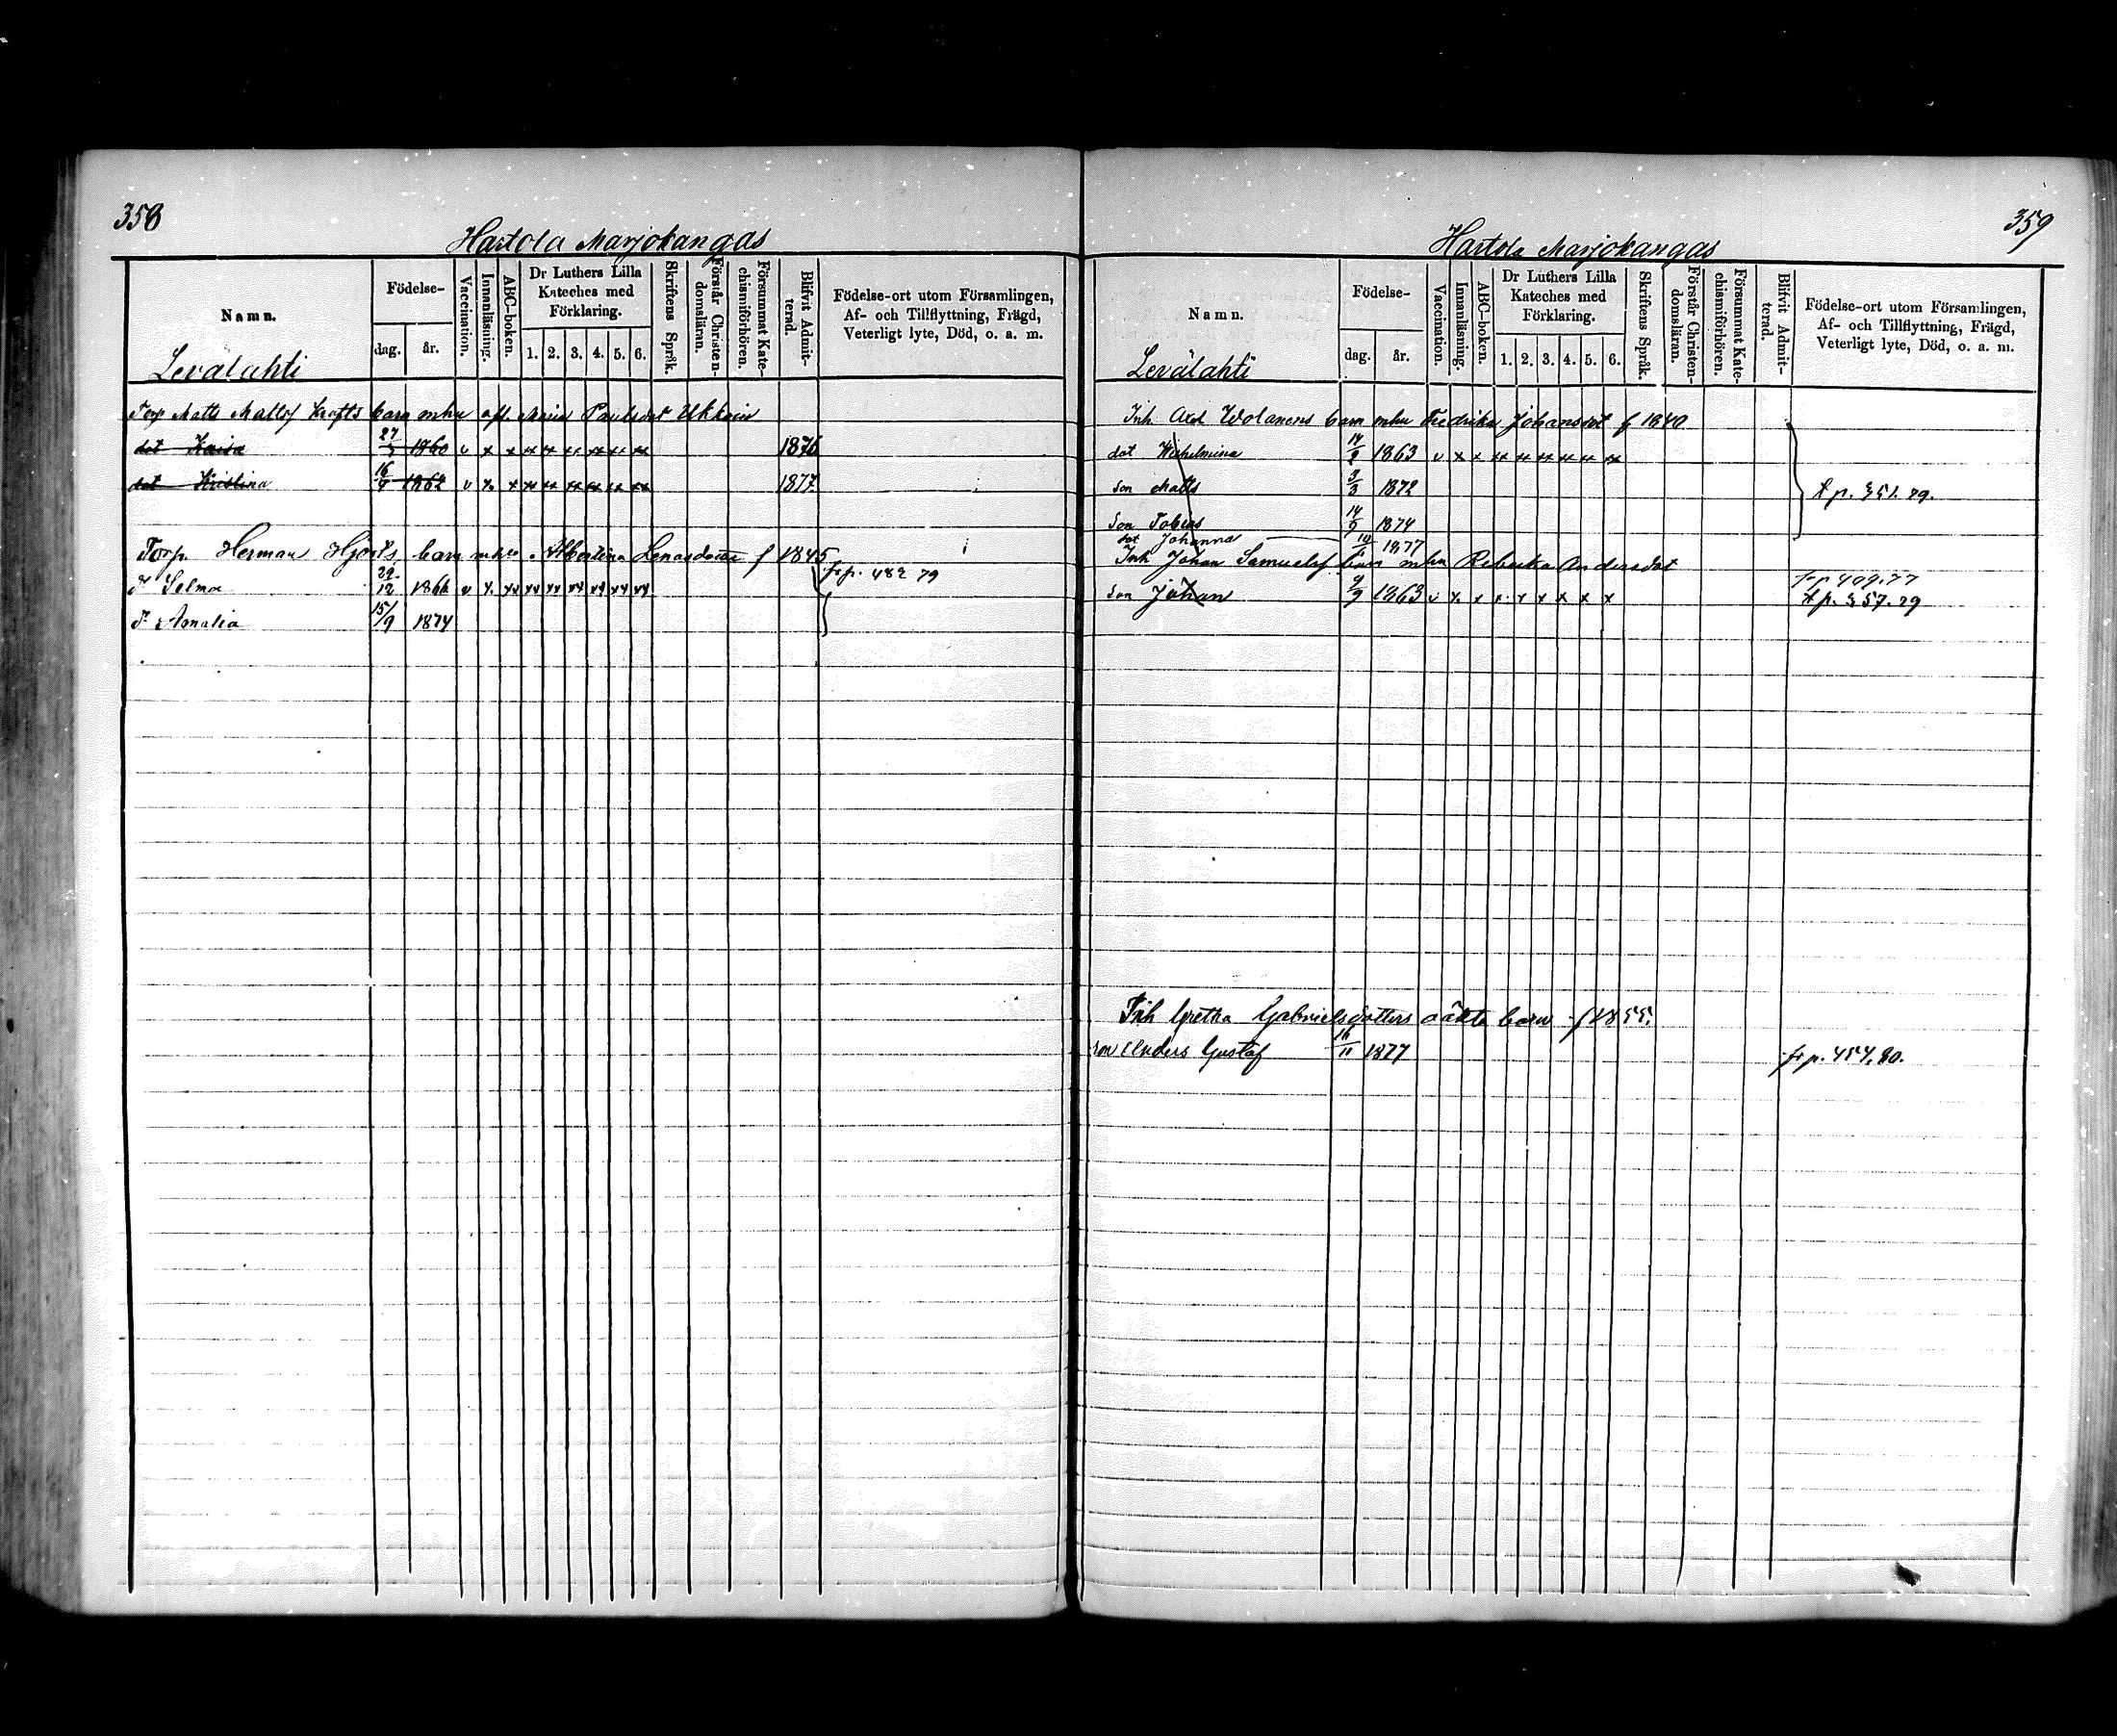 358
Hartola Marjokangas
Namn.
Födelse-
dag.
år.
Vaccination.
Innanläsning.
ABC-boken.
Dr Luthers Lilla
Kateches med
Förklaring.
1. 2. 3. 4. 5. 6.
Skriftens Språk.
Förstår Christen-
domsläran.
Försummat Kate-
chismiförhören.
Blifvit Admit-
terad.
Födelse-ort utom Församlingen,
Af- och Tillflyttning, Frägd,
Veterligt lyte, Död, o. a. m.
Levälahti
Torp Matts Mattsf Krofts barn mhu afl. Maria Paulsdot Ukkoin
dot Kaisa 27/5 1860 v x x xx xx xx xx xx xx 1876
dot Kristina 16/4 1862 v x x xx xx xx xx xx xx 1877
Torp Herman Hjorts barn mhu Albertina Lenasdotter f 1845
fr p. 482 79
d Selma 29/12 1866 v x xx xx xx xx xx xx xx
d Amalia 15/9 1874
359
Hartola Marjokangas
Namn.
Födelse-
dag.
år.
Vaccination.
Innanläsning.
ABC-boken.
Dr Luthers Lilla
Kateches med
Förklaring.
1. 2. 3. 4. 5. 6.
Skriftens Språk.
Förstår Christen-
domsläran.
Försummat Kate-
chismiförhören.
Blifvit Admit-
terad.
Födelse-ort utom Församlingen,
Af- och Tillflyttning, Frägd,
Veterligt lyte, Död, o. a. m.
Levälahti
Inh. Axel Wolanens barn mhu Fredrika Johansdot f 1840
dot Wilhelmina 14/2 1863 v x x xx xx xx xx xx xx
son Matts 3/3 1872 t p. 351. 79.
Son Tobias 14/9 1874
dot Johanna 10/6 1877
Inh Johan Samuelsf barn mhu Rebecka Andersdot
fr p 409. 77
Son Johan 4/9 1863 v x x x x x x x x t p. 357. 79
Inh Gretha Gabrielsdotters oäkta barn f 1855.
son Anders Gustaf 16/11 1877 fr p. 454. 80.